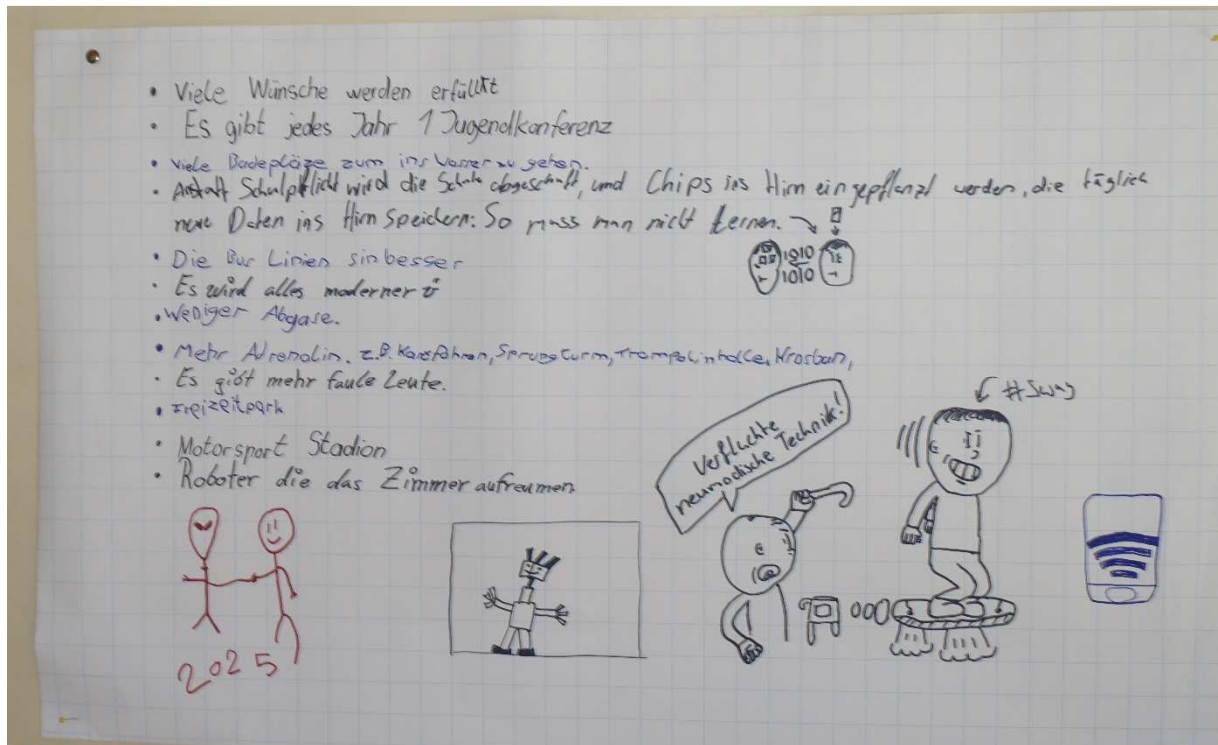 • Viele Wünsche werden erfüllt
• Es gibt jedes Jahr 1 Jugendkonferenz
• Viele Badepläze zum ins Wasser zu gehen.
• Anstatt Schulpflicht wird die Schule abgeschaft, und Chips ins Hirn eingepflanzt werden, die täglich
neue Daten ins Hirn speichern. So muss man nicht lernen.
1010
1010
• Die Bus Linien sin besser
• Es wird alles moderner
• Weniger Abgase.
• Mehr Adrenalin. z.B. Kartfahren, Sprungturm, Trampolinhalle,
• Es gibt mehr faule Leute.
• Freizeitpark
• Motorsport Stadion
• Roboter die das Zimmer aufreumen.
#Swag
Verfluchte
neumodische Technik!
2025